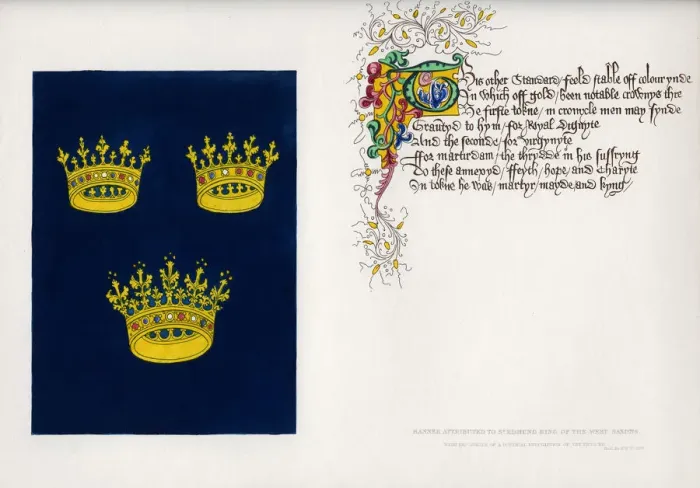 This other Standard / feeld stable off colour ynde
In which off gold / been notable crownys thre
The firste tokne / in cronycle men may fynde
Grauntyd to hym / for Royal Dignyte
And the seconde / for virgynyte
Ffor martirdam / the thrydde in his suffryng
To these annexyd / Ffeyth, hope, and Charyte
In tokne he was / martyr / mayde and kyng
BANNER ATTRIBUTED TO ST EDMUND KING OF THE WEST SAXONS.
OF A POETICAL DESCRIPTION OF